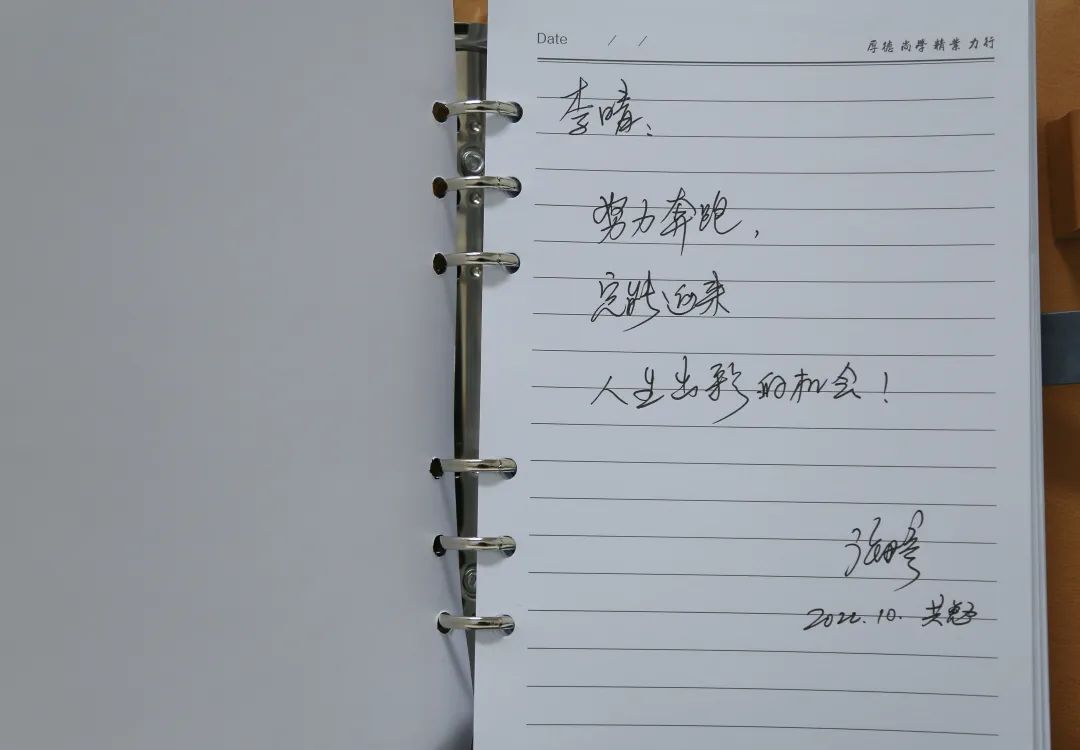 Date / /
厚德 尚學 精業 力行
李晴：
努力奔跑，
定能迎来
人生出彩的机会！
2022.10.